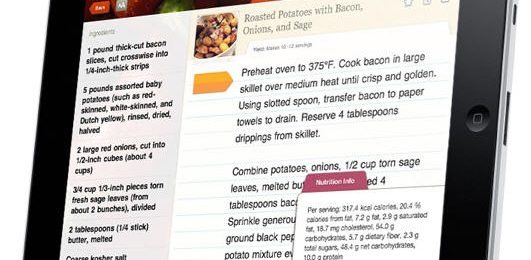 Back
AA
Ingredients
1 pound thick-cut bacon
slices, cut crosswise into
1/4-inch-thick strips
5 pounds assorted baby
potatoes (such as red-
skinned, white-skinned, and
Dutch yellow), rinsed, dried,
halved
2 large red onions, cut into
1/2-inch cubes (about 4
cups)
3/4 cup 1/3-inch pieces torn
fresh sage leaves (from
about 2 bunches), divided
2 tablespoons (1/4 stick)
butter, melted
Coarse kosher salt
Roasted Potatoes with Bacon,
Onions, and Sage
Yield: Makes 10-12 servings
Preheat oven to 375°F. Cook bacon in large
skillet over medium heat until crisp and golden.
Using slotted spoon, transfer bacon to paper
towels to drain. Reserve 4 tablespoons
drippings from skillet.
Combine potatoes, onions, 1/2 cup torn sage
leaves, melted bu ed 4
tablespoons bac
Sprinkle generou
ground black pep
potato mixture ev
Nutrition Info
Per serving: 317.4 kcal calories, 20.4 %
calories from fat, 7.2 g fat, 2.9 g saturated
fat, 18.7 mg cholesterol, 54.0 g
carbohydrates, 5.7 g dietary fiber, 2.3 g
total sugars, 48.4 g net carbohydrates,
10.0 g protein